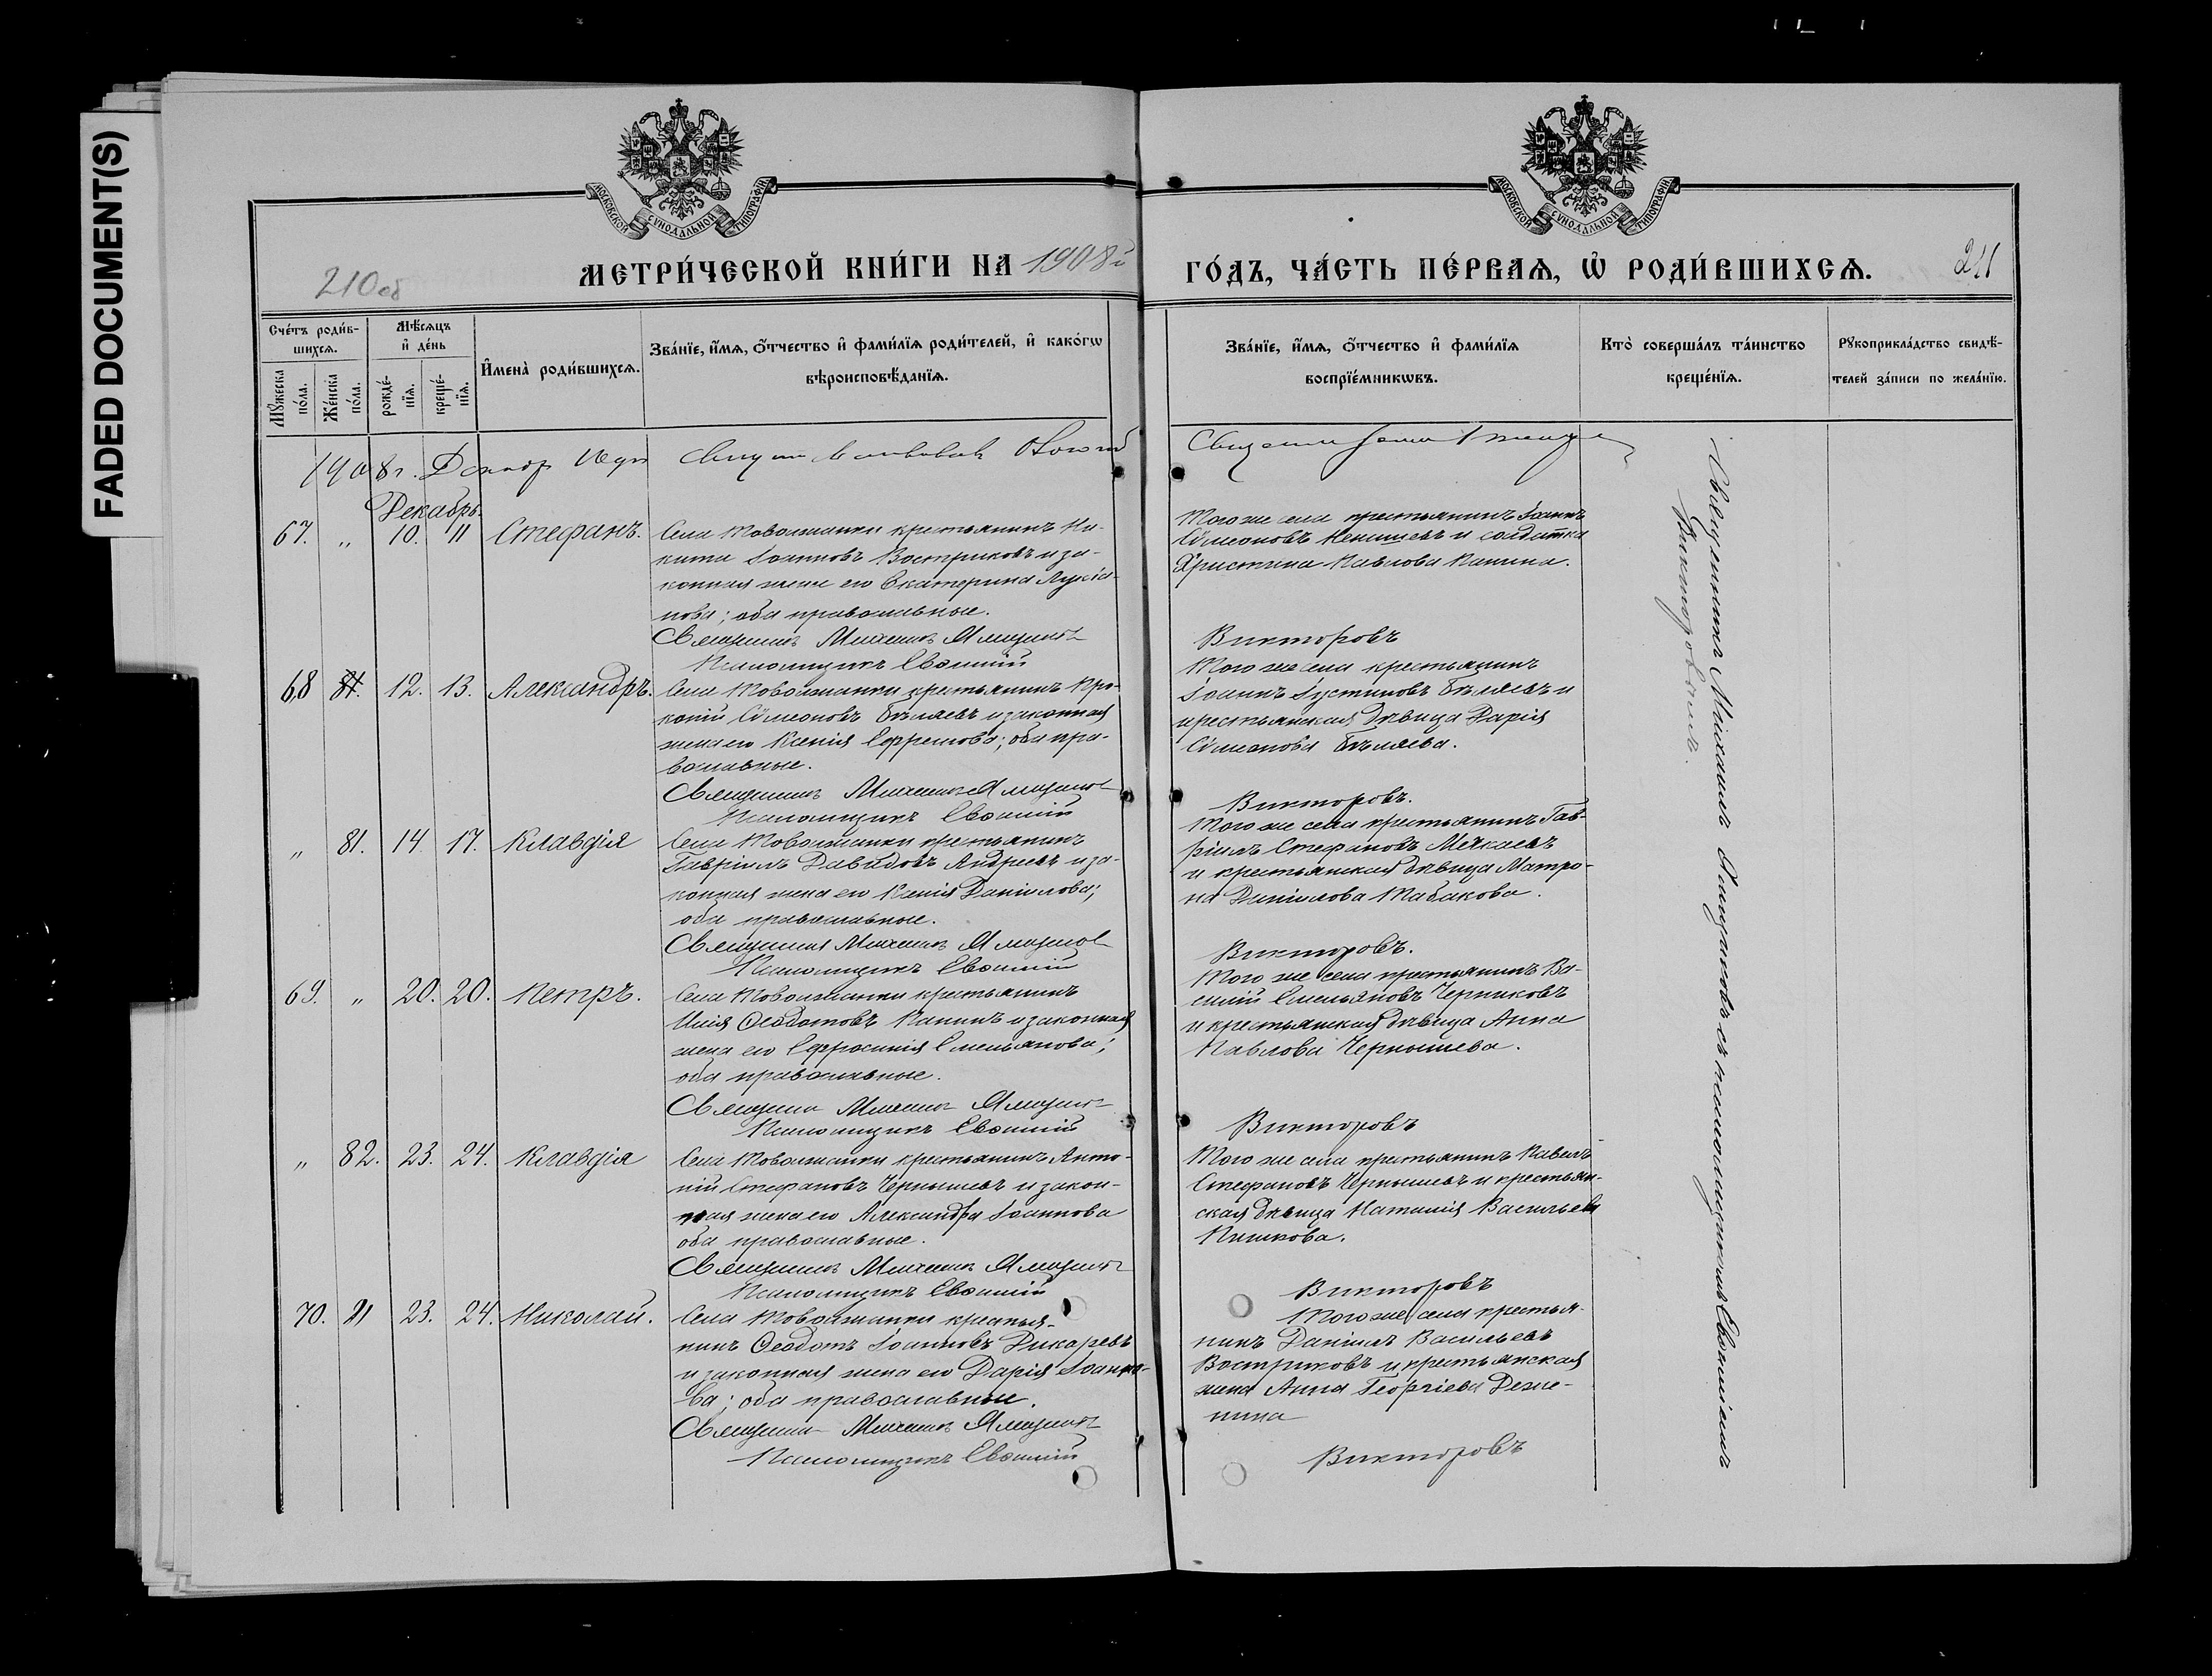 FADED DOCUMENT(S)
МОСКОВСКОЙ СѴНОДАЛЬНОЙ ТИПОГРАФІИ
МОСКОВСКОЙ СѴНОДАЛЬНОЙ ТИПОГРАФІИ
210об
МЕТРИ́ЧЕСКОЙ КНИ́ГИ НА 1908й
ГО́ДЪ, ЧА́СТЬ ПЕ́РВАѦ, Ѡ҆ РОДИ́ВШИХСѦ.
211
Сче́тъ роди́в-
шихсѧ.
Мꙋ́жеска по́ла.
Же́нска по́ла.
Мѣ́сѧцъ
и҆ де́нь
рожде́-
нїѧ.
креще́-
нїѧ.
И҆мена̀ роди́вшихсѧ.
Зва́нїе, и҆́мѧ, ѻ҆́тчество и҆ фами́лїѧ роди́телей, и҆ како́гѡ
вѣроисповѣ́данїѧ.
Зва́нїе, и҆́мѧ, ѻ҆́тчество и҆ фами́лїѧ
воспрїе́мникѡвъ.
Кто̀ соверша́лъ та́инство
креще́нїѧ.
Рꙋкоприкла́дство свидѣ́-
телей за́писи по жела́нїю.
1908 г.
Декабрь.
67. „ 10. 11 Стефанъ.
Села Товолжанки крестьянинъ Ни-
кита Іоанновъ Востриковъ и за-
конная жена его Екатерина Лукіа-
нова; оба православные.
Священникъ Михаилъ
Псаломщикъ Евѳимій
Того же села крестьянинъ Іоаннъ
Сѵмеоновъ и солдатка
Христина Павлова Панина.
Викторовъ
68 81. 12. 13. Александръ.
Села Товолжанки крестьянинъ Про-
копій Сѵмеоновъ Бѣляевъ и законная
жена его Ксенія Ефремова; оба пра-
вославные.
Священникъ Михаилъ
Псаломщикъ Евѳимій
Того же села крестьянинъ
Іоаннъ Іустиновъ Бѣляевъ и
крестьянская дѣвица Дарія
Сѵмеонова Бѣляева.
Викторовъ.
„ 81. 14. 17. Клавдія
Села Товолжанки крестьянинъ
Гавріилъ Давидовъ Андреевъ и за-
конная жена его Ксенія Даніилова;
оба православные.
Священникъ Михаилъ
Псаломщикъ Евѳимій
Того же села крестьянинъ Гав-
ріилъ Стефановъ
и крестьянская дѣвица Матро-
на Даніилова Табакова.
Викторовъ.
69. „ 20. 20. Петръ.
Села Товолжанки крестьянинъ
Илія Ѳеодотовъ Панинъ и законная
жена его Ефросинія Емельянова;
оба православные.
Священникъ Михаилъ
Псаломщикъ Евѳимій
Того же села крестьянинъ Ва-
силій Емельяновъ Черниковъ
и крестьянская дѣвица Анна
Павлова Чернышева.
Викторовъ
„ 82. 23. 24. Клавдія
Села Товолжанки крестьянинъ Анто-
ній Стефановъ Чернышевъ и закон-
ная жена его Александра Іоаннова
оба православные.
Священникъ Михаилъ
Псаломщикъ Евѳимій
Того же села крестьянинъ Павелъ
Стефановъ Чернышевъ и крестьян-
ская дѣвица Наталія Васильева
Пишкова.
Викторовъ
70. 23. 24. Николай.
Села Товолжанки крестья-
нинъ Ѳеодотъ Іоанновъ Дикаревъ
и законная жена его Дарія Іоанно-
ва; оба православные.
Священникъ Михаилъ
Псаломщикъ Евѳимій
Того же села крестья-
нинъ Даніилъ Васильевъ
Востриковъ и крестьянская
жена Анна Георгіева
Викторовъ
Священникъ Михаилъ съ псаломщикомъ Евѳиміемъ
Викторовымъ.